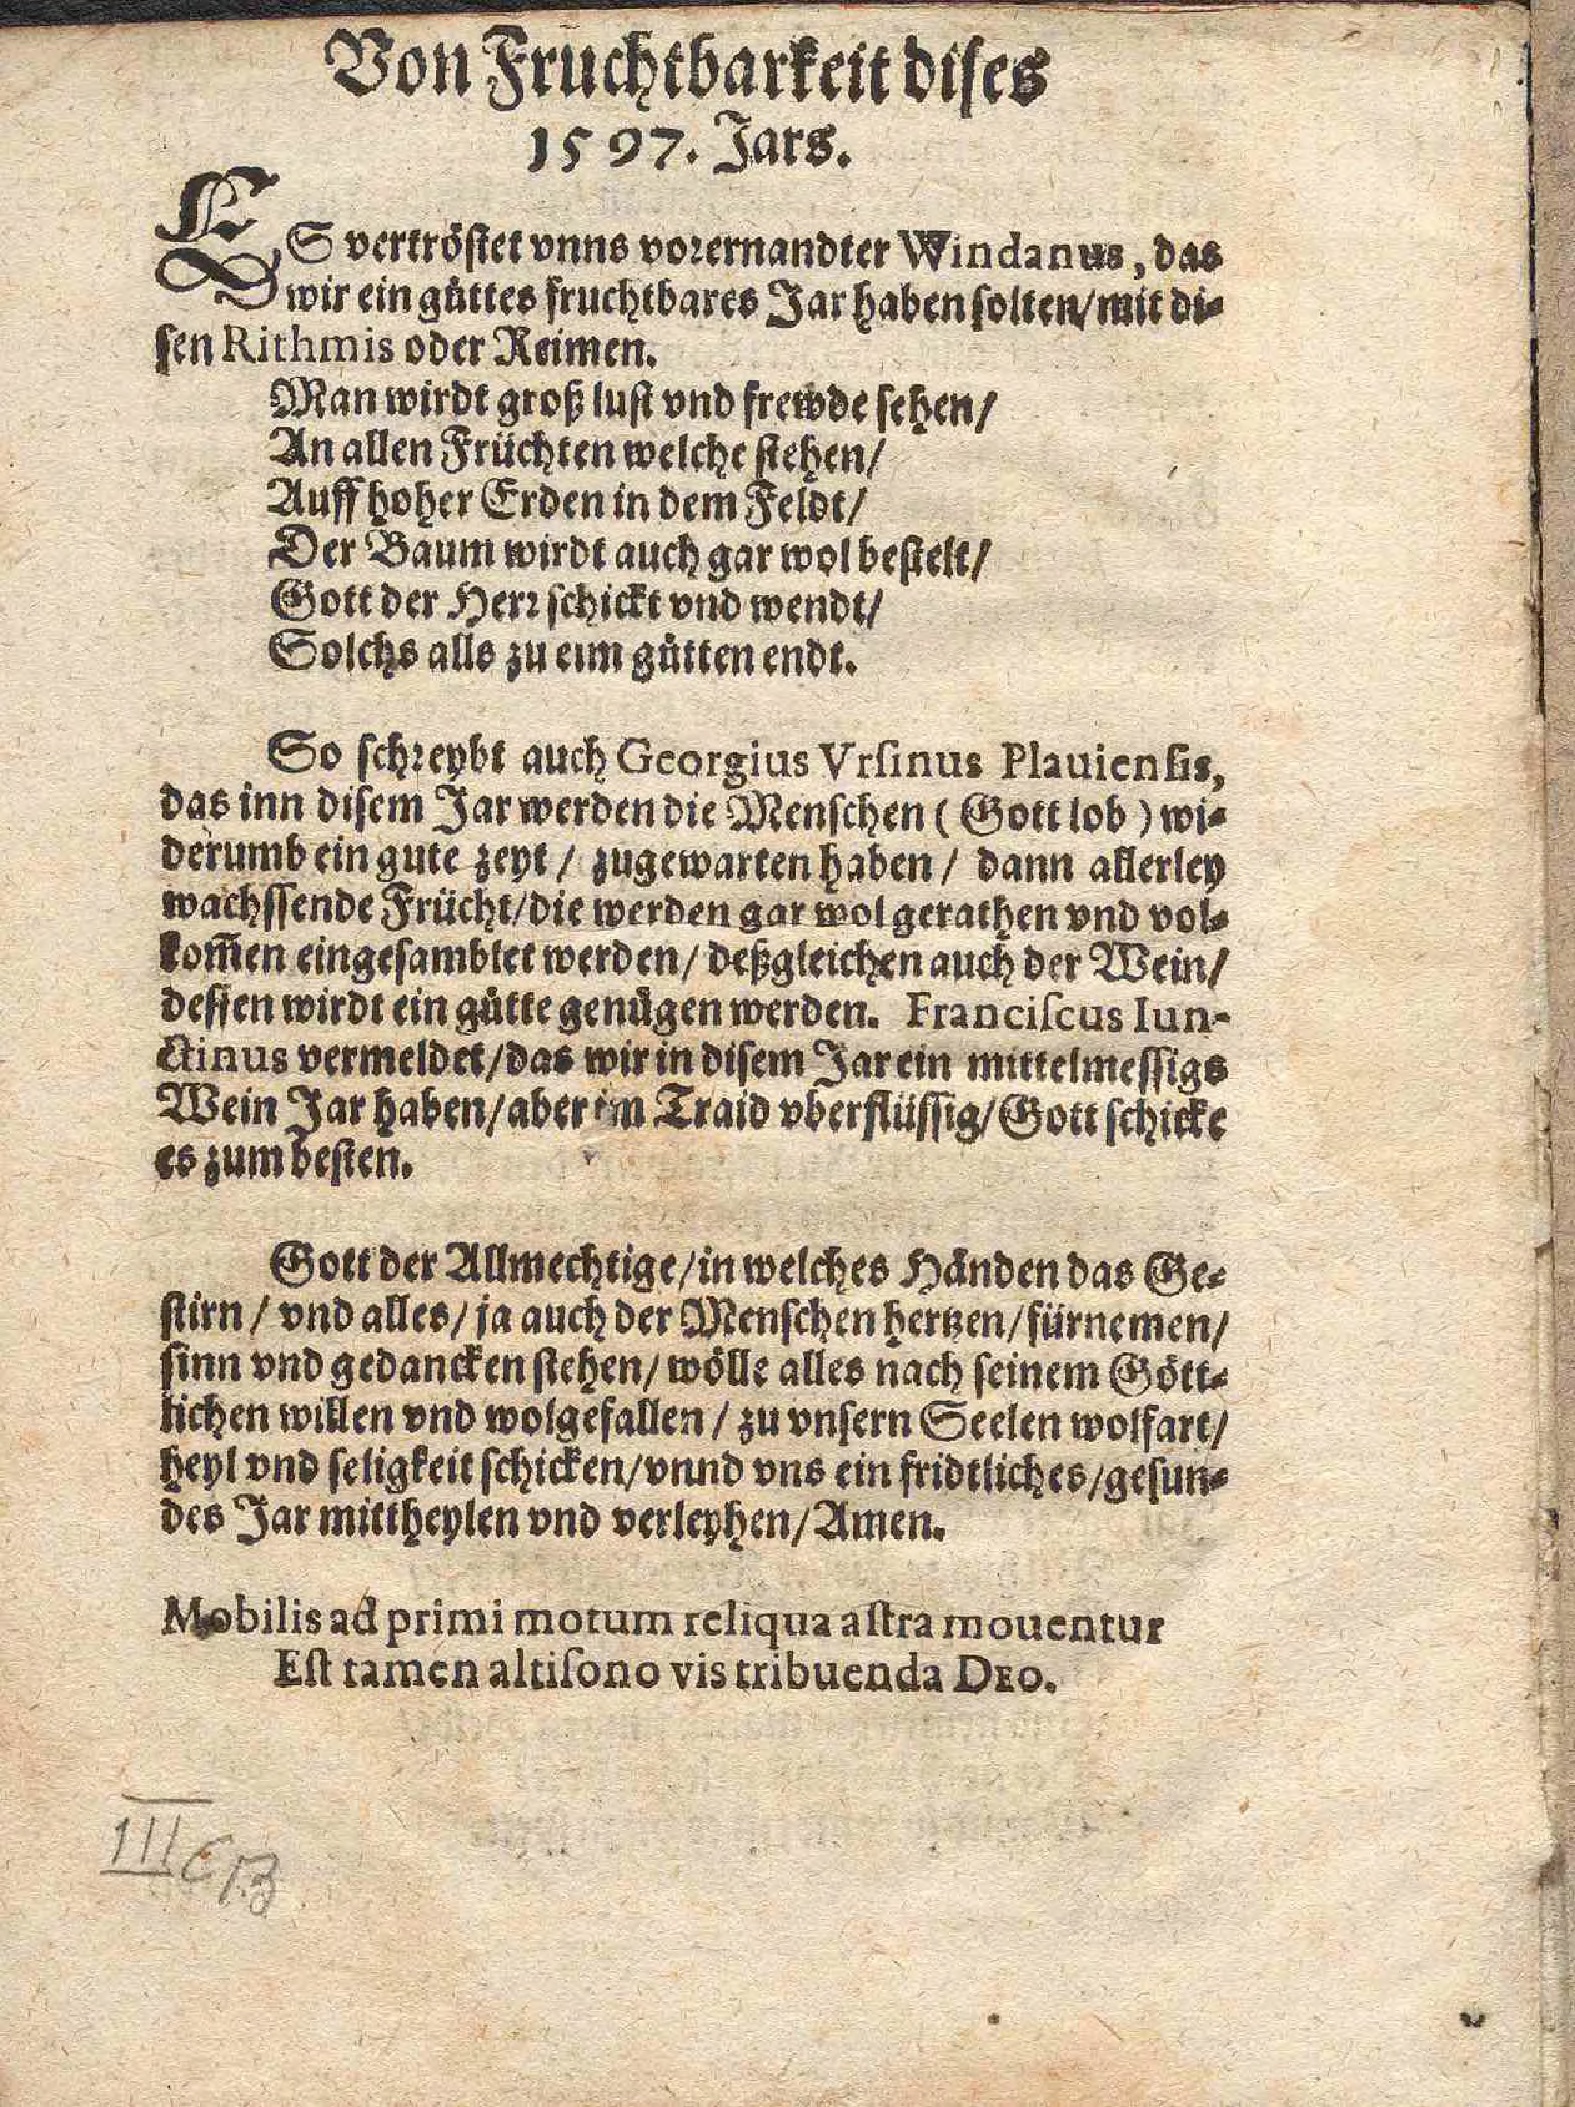 Von Fruchtbarkeit dises
1597. Jars.
ES vertröstet vnns vorernandter Windanus, das
wir ein gůttes fruchtbares Jar haben solten/mit di-
sen Rithmis oder Reimen.
Man wirdt groß lust vnd frewde sehen/
An allen Früchten welche stehen/
Auff hoher Erden in dem Feldt/
Der Baum wirdt auch gar wol bestelt/
Gott der Herr schickt vnd wendt/
Solchs alls zu eim gůtten endt.
So schreybt auch Georgius Vrsinus Plauiensis,
das inn disem Jar werden die Menschen (Gott lob) wi-
derumb ein gute zeyt / zugewarten haben / dann allerley
wachssende Frücht/die werden gar wol gerathen vnd vol-
kom̃en eingesamblet werden/ deßgleichen auch der Wein/
dessen wirdt ein gůtte genůgen werden. Franciscus Iun-
ctinus vermeldet/das wir in disem Jar ein mittelmessigs
Wein Jar haben/aber im Traid vberflüssig/Gott schicke
es zum besten.
Gott der Allmechtige/in welches Händen das Ge-
stirn / vnd alles/ ja auch der Menschen hertzen/fürnemen/
sinn vnd gedancken stehen/ wölle alles nach seinem Gött-
lichen willen vnd wolgefallen / zu vnsern Seelen wolfart/
heyl vnd seligkeit schicken/vnnd vns ein fridtliches/gesun-
des Jar mittheylen vnd verleyhen/Amen.
Mobilis ad primi motum reliqua astra mouentur
Est tamen altisono vis tribuenda DEO.
III C 13